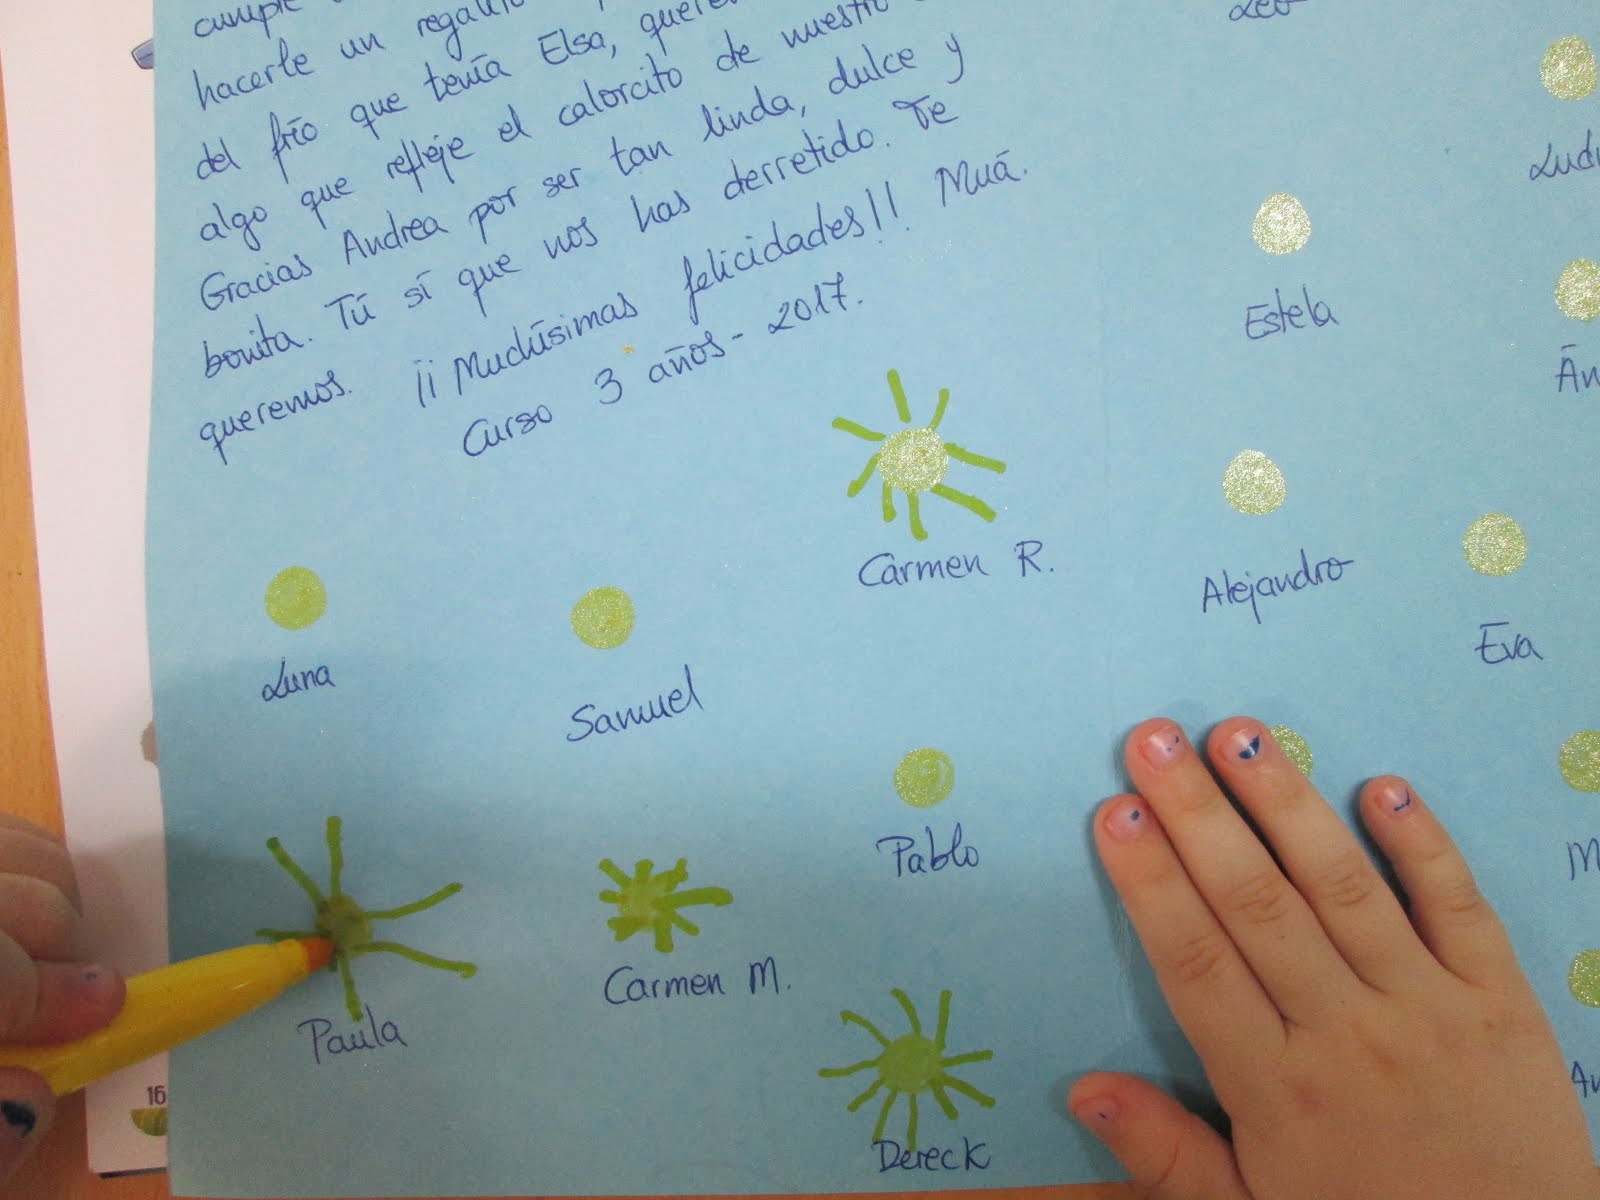 hacerle un regalito
del frío que tenía Elsa,
algo que refleje el calorcito de nuestro
Gracias Andrea por ser tan linda, dulce y
bonita. Tú sí que nos has derretido. Te
queremos. ¡¡Muchísimas felicidades!! Muá.
Curso 3 años - 2017.
Estela
Carmen R.
Alejandro
Eva
Luna
Samuel
Pablo
Carmen M.
Paula
Dereck
16